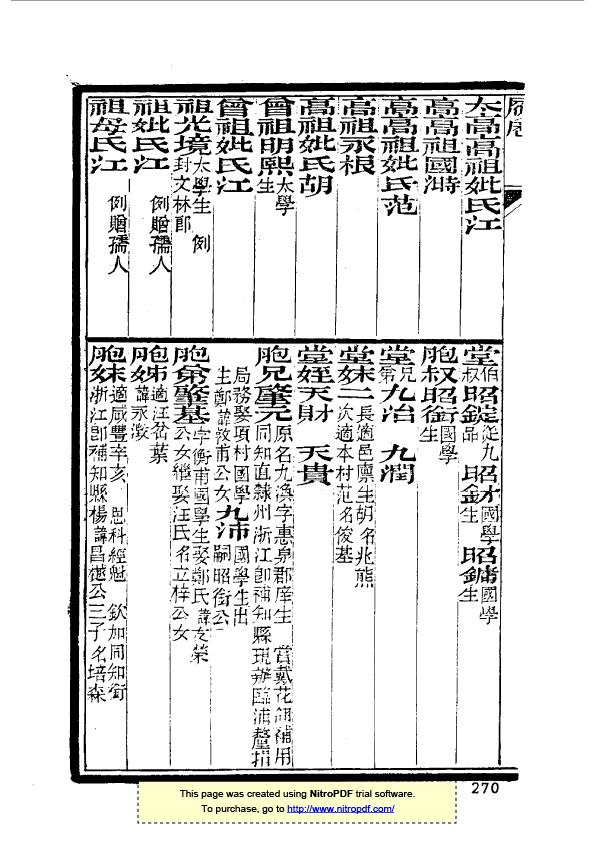 太高高祖妣氏江
高高祖國時
高高祖妣氏范
高祖永根
高祖妣氏胡
曾祖明熙 太學生
曾祖妣氏江
祖光境 太學生 例封文林郎
祖妣氏江 例贈孺人
祖母氏江 例贈孺人
堂伯叔昭錠 從九品 昭鈥 國學生 昭鏞 國學生
胞叔昭銜 國學生
堂兄弟九治 九潤
堂妹二 長適邑廩生胡名兆熊 次適本村范名俊基
堂姪天財 天貴
胞兄肇元 原名九渙字惠泉郡庠生 賞戴花翎補用同知直隸州浙江即補知縣現辦臨浦釐捐局務娶項村國學生鄭諱敦甫公女 九沛 國學生出嗣昭銜公
胞弟肇基 字衡甫國學生娶鄭氏諱友榮公女繼娶汪氏名立梓公女
胞姊 適汪岔葉諱永漋
胞妹 適咸豐辛亥 恩科經魁 欽加同知銜浙江即補知縣楊諱昌樾公三子名培森
270
This page was created using NitroPDF trial software.
To purchase, go to http://www.nitropdf.com/